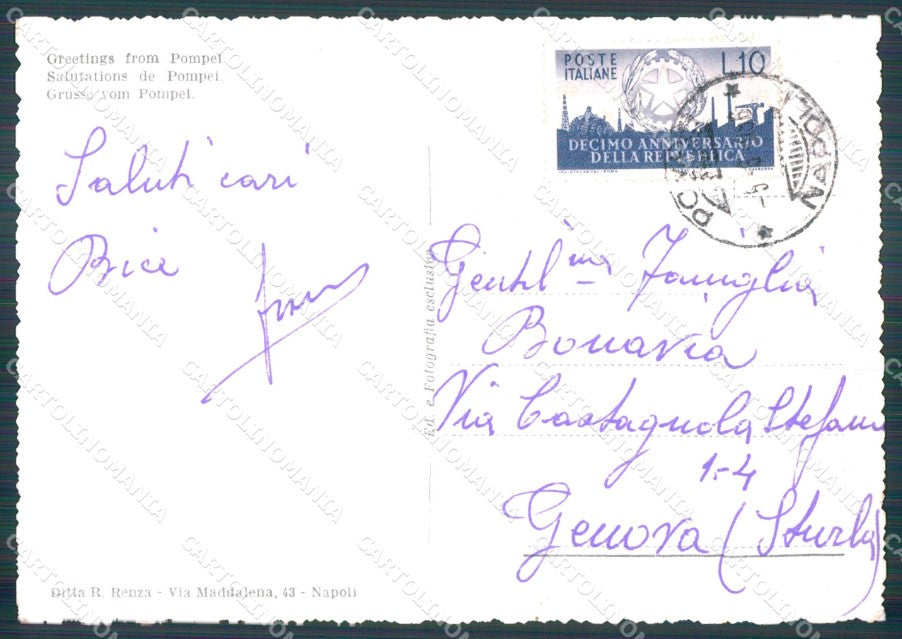 Greetings from Pompei
Salutations de Pompei.
Grüsse vom Pompei.
Saluti cari
Bice
Ed. e Fotografia esclusiva
Ditta R. Renza - Via Maddalena, 43 - Napoli
POSTE
ITALIANE
L.10
DECIMO ANNIVERSARIO
DELLA REPUBBLICA
NAPOLI
Gentil ma Famiglia
Bonavia
Via Castagnola Stefano
1-4
Genova (Sturla)
CARTOLINOMANIA